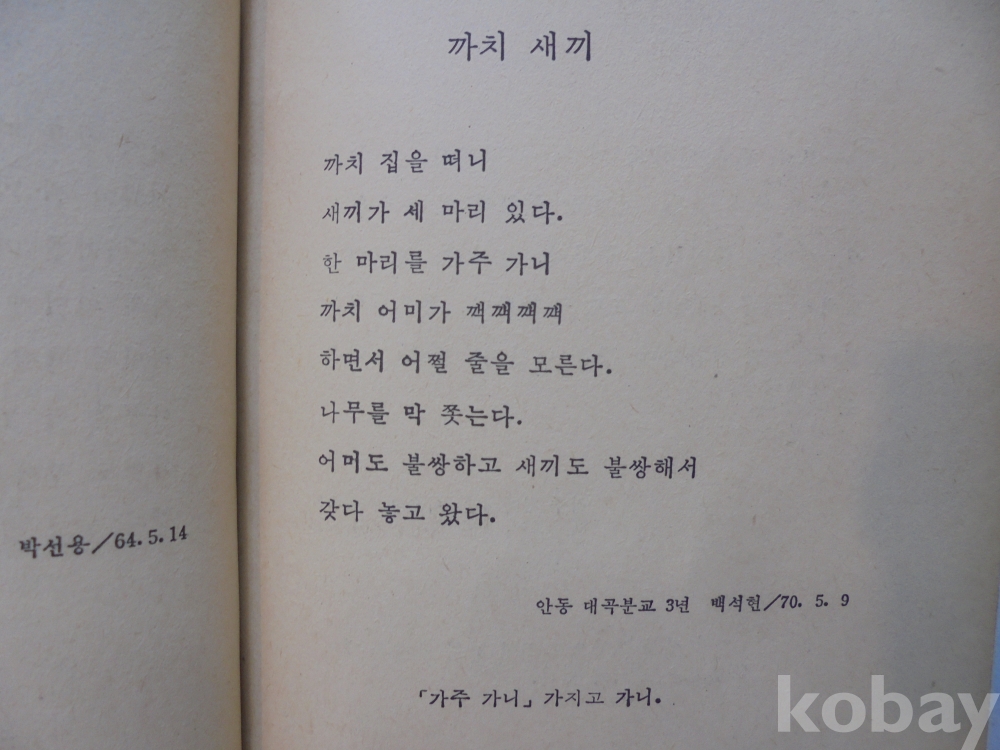 까치 새끼
까치 집을 떠니
새끼가 세 마리 있다.
한 마리를 가주 가니
까치 어미가 깩깩깩깩
하면서 어쩔 줄을 모른다.
나무를 막 쫏는다.
어머도 불쌍하고 새끼도 불쌍해서
갖다 놓고 왔다.
박선용/64.5.14
안동 대곡분교 3년 백석현/70. 5. 9
「가주 가니」 가지고 가니.
kobay